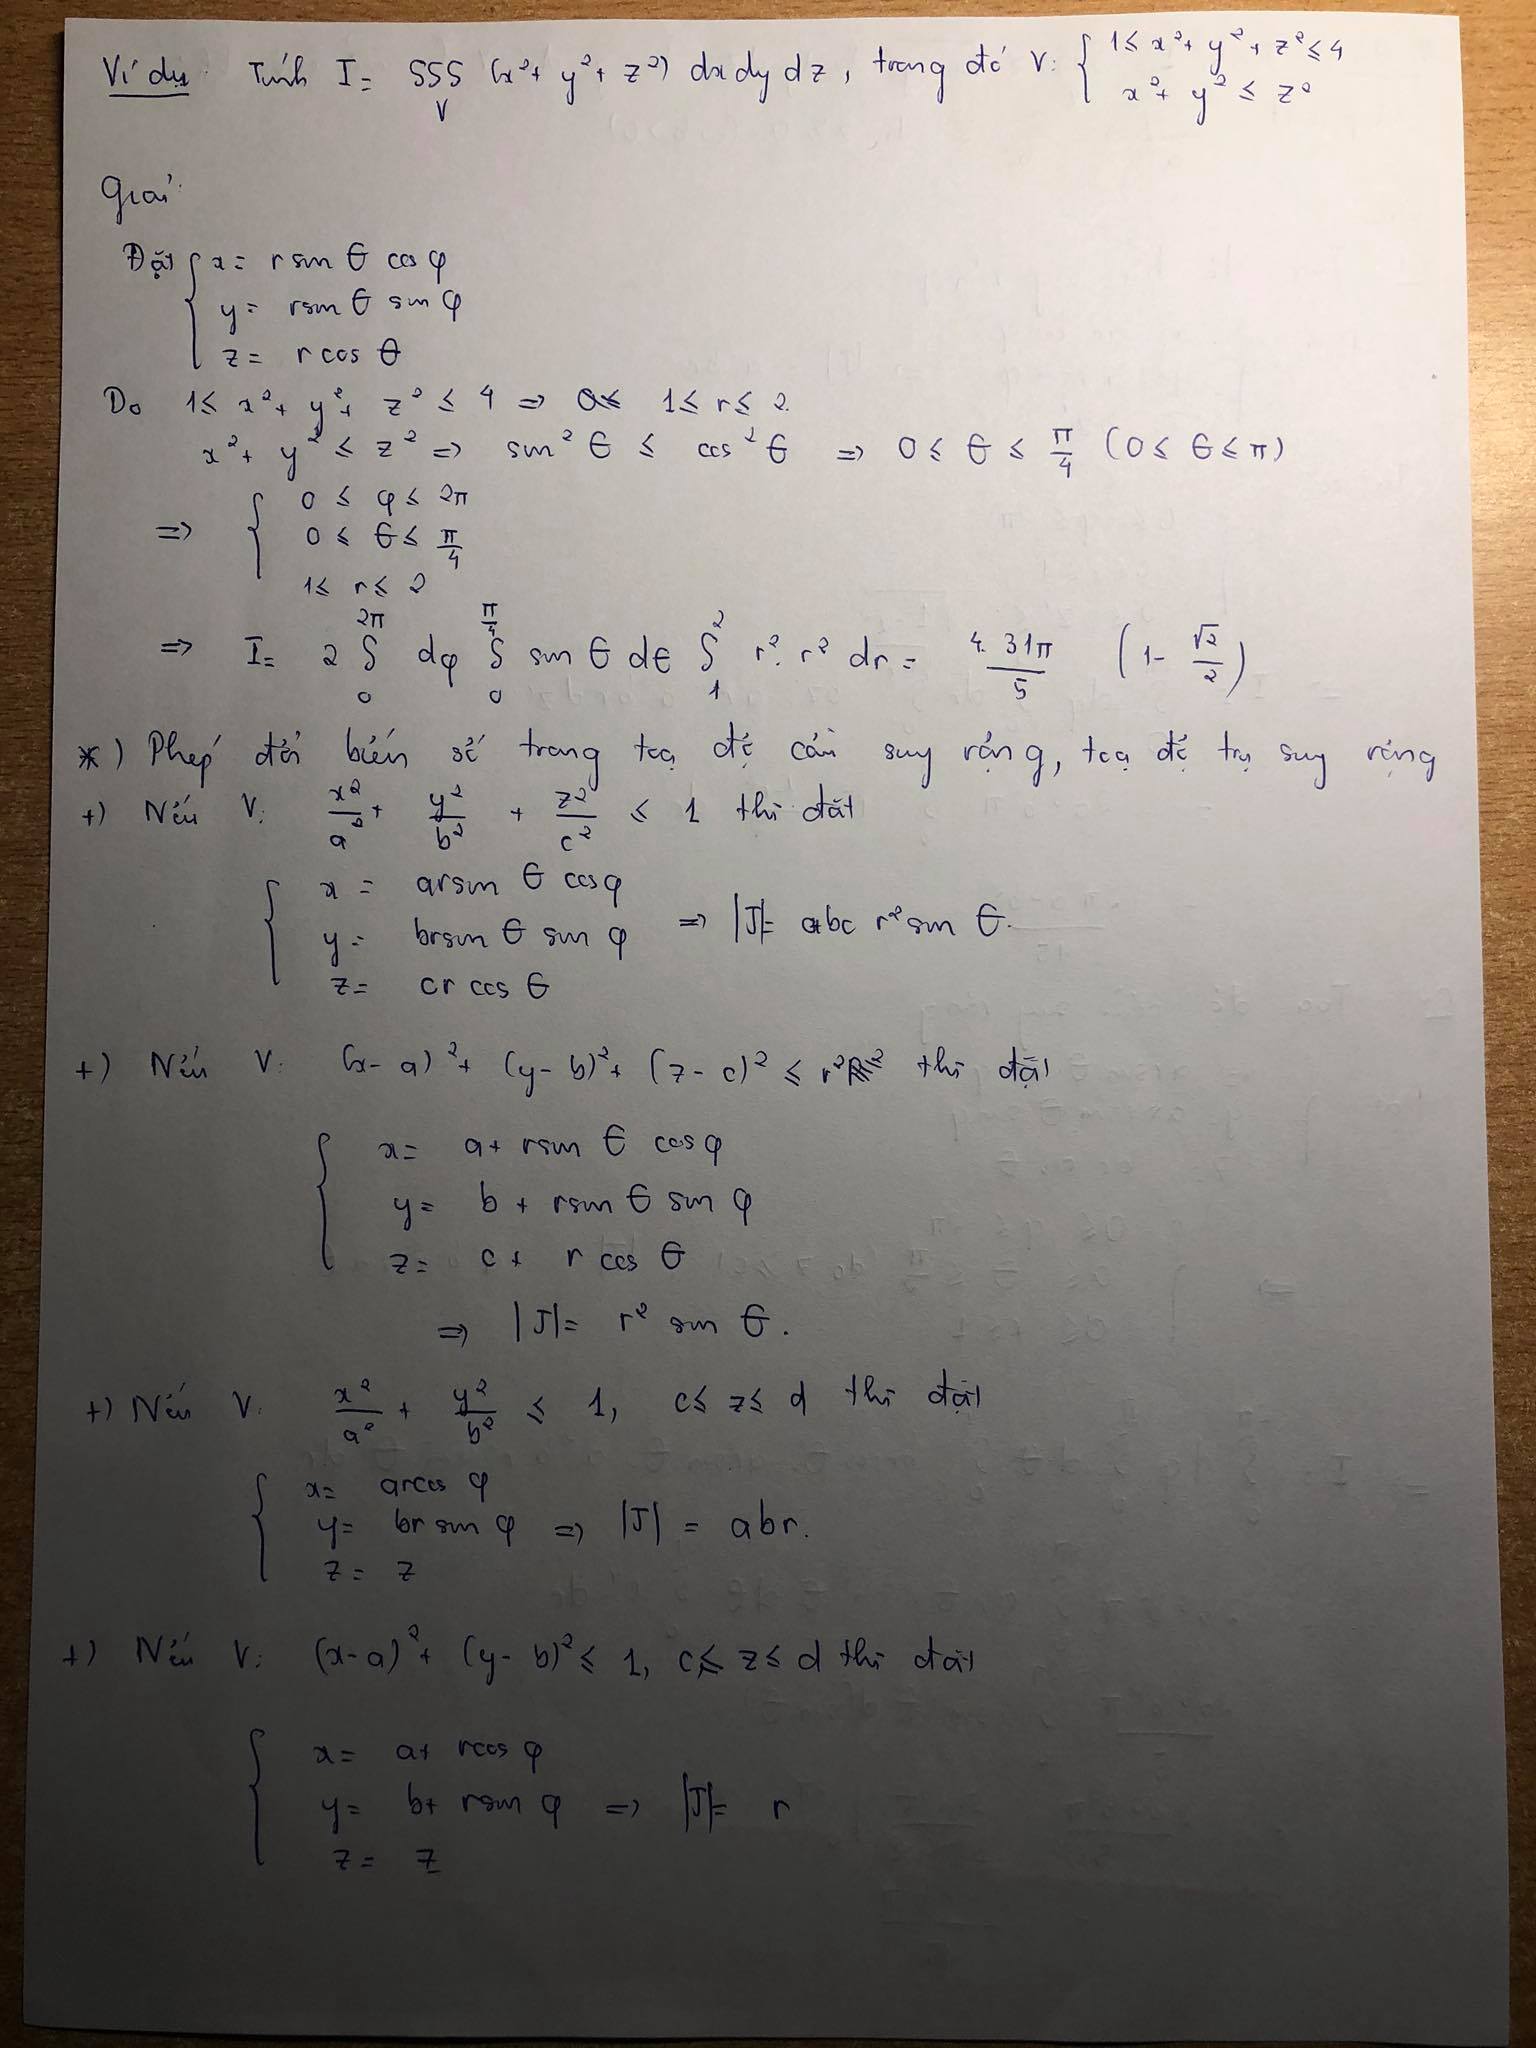 Ví dụ: Tính I = ∭ (x² + y² + z²) dx dy dz, trong đó V: { 1 ≤ x² + y² + z² ≤ 4
V
x² + y² ≤ z²
Giải:
Đặt { x = r sin θ cos φ
y = r sin θ sin φ
z = r cos θ
Do 1 ≤ x² + y² + z² ≤ 4 => 1 ≤ r ≤ 2.
x² + y² ≤ z² => sin² θ ≤ cos² θ => 0 ≤ θ ≤ π/4 (0 ≤ θ ≤ π)
=> { 0 ≤ φ ≤ 2π
0 ≤ θ ≤ π/4
1 ≤ r ≤ 2
=> I = 2 ∫₀^{2π} dφ ∫₀^{π/4} sin θ dθ ∫₁² r². r² dr = 4. 31π/5 (1 - √2/2)
*) Phép đổi biến số trong toạ độ cầu suy rộng, toạ độ trụ suy rộng
+) Nếu V: x²/a² + y²/b² + z²/c² ≤ 1 thì đặt
{ x = ar sin θ cos φ
y = br sin θ sin φ => |J| = abc r² sin θ.
z = cr cos θ
+) Nếu V: (x - a)² + (y - b)² + (z - c)² ≤ r² thì đặt
{ x = a + r sin θ cos φ
y = b + r sin θ sin φ
z = c + r cos θ
=> |J| = r² sin θ.
+) Nếu V: x²/a² + y²/b² ≤ 1, c ≤ z ≤ d thì đặt
{ x = ar cos φ
y = br sin φ => |J| = abr.
z = z
+) Nếu V: (x - a)² + (y - b)² ≤ 1, c ≤ z ≤ d thì đặt
{ x = a + r cos φ
y = b + r sin φ => |J| = r
z = z